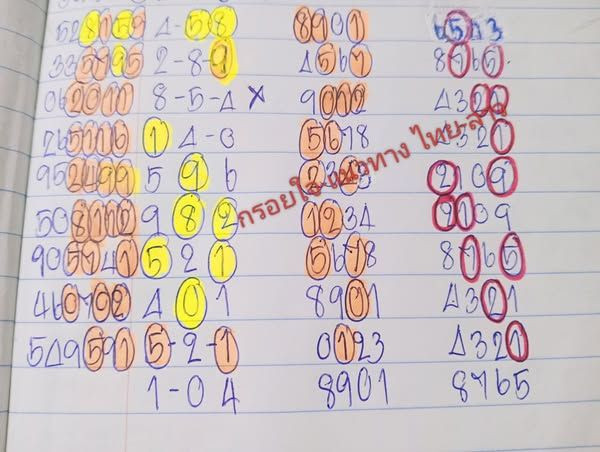 528159 4-58 8901 6543
335795 2-8-9 4567 8765.
062011 8-5-4 x 9012 4321
265116 1 4-0 5678 4321
952499 5 9 6 2345 2109
508112 9 8 2 1234 2109
905141 5 2 1 5678 8765
460702 4 0 1 8901 4321
549591 5-2-1 0123 4321
1-04 8901 8765